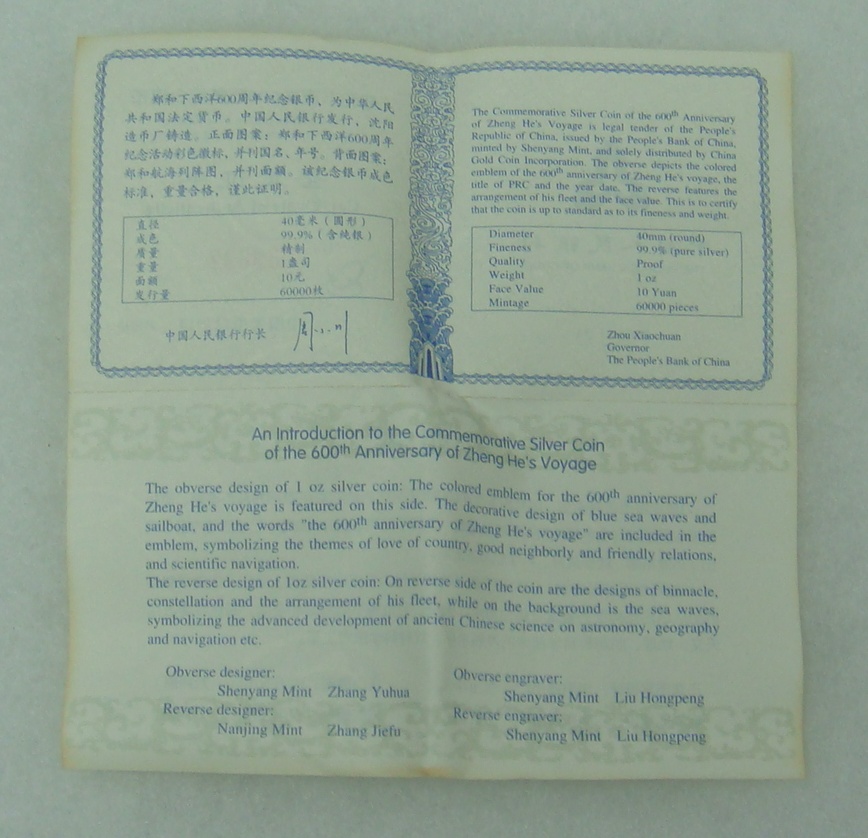 郑和下西洋600周年纪念银币、为中华人民
共和国法定货币。中国人民银行发行、沈阳
造币厂铸造。正面图案：郑和下西洋600周年
纪念活动彩色徽标，并刊国名、年号。背面图案：
郑和航海列阵图，并刊面额。该纪念银币成色
标准、重量合格，谨此证明。
直径 40毫米（圆形）
成色 99.9%（含纯银）
质量 精制
重量 1盎司
面额 10元
发行量 60000枚
中国人民银行行长 周小川
The Commemorative Silver Coin of the 600th Anniversary
of Zheng He's Voyage is legal tender of the People's
Republic of China, issued by the People's Bank of China,
minted by Shenyang Mint, and solely distributed by China
Gold Coin Incorporation. The obverse depicts the colored
emblem of the 600th anniversary of Zheng He's voyage, the
title of PRC and the year date. The reverse features the
arrangement of his fleet and the face value. This is to certify
that the coin is up to standard as to its fineness and weight.
Diameter 40mm (round)
Fineness 99.9% (pure silver)
Quality Proof
Weight 1 oz
Face Value 10 Yuan
Mintage 60000 pieces
Zhou Xiaochuan
Governor
The People's Bank of China
An Introduction to the Commemorative Silver Coin
of the 600th Anniversary of Zheng He's Voyage
The obverse design of 1 oz silver coin: The colored emblem for the 600th anniversary of
Zheng He's voyage is featured on this side. The decorative design of blue sea waves and
sailboat, and the words "the 600th anniversary of Zheng He's voyage" are included in the
emblem, symbolizing the themes of love of country, good neighborly and friendly relations,
and scientific navigation.
The reverse design of 1oz silver coin: On reverse side of the coin are the designs of binnacle,
constellation and the arrangement of his fleet, while on the background is the sea waves,
symbolizing the advanced development of ancient Chinese science on astronomy, geography
and navigation etc.
Obverse designer:
Shenyang Mint Zhang Yuhua
Reverse designer:
Nanjing Mint Zhang Jiefu
Obverse engraver:
Shenyang Mint Liu Hongpeng
Reverse engraver:
Shenyang Mint Liu Hongpeng